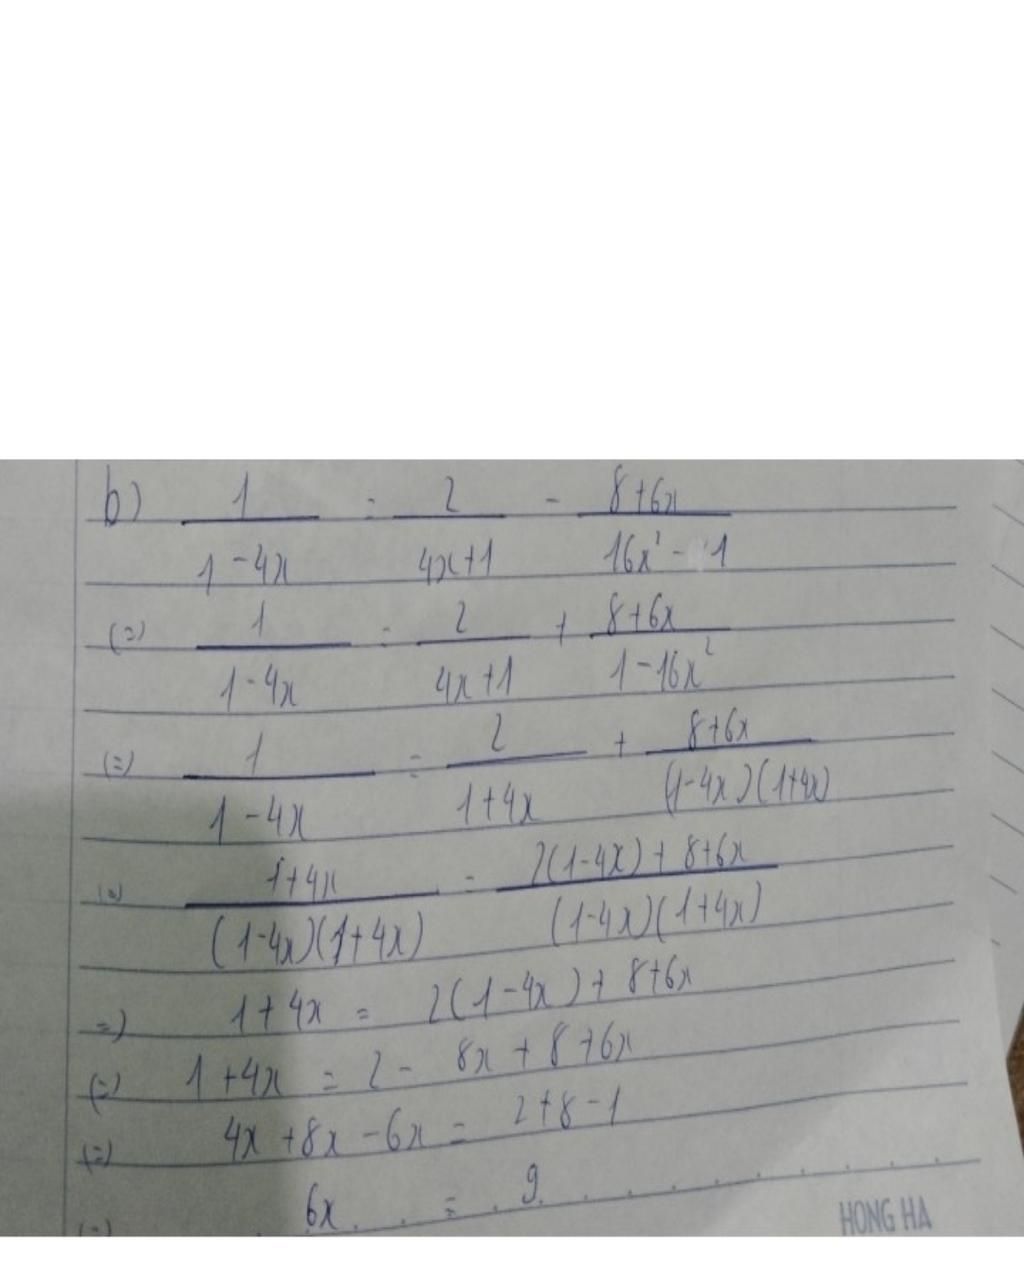 b) 1/(1-4x) = 2/(4x+1) - (8+6x)/(16x² - 1)
(=) 1/(1-4x) = 2/(4x+1) + (8+6x)/(1-16x²)
(=) 1/(1-4x) = 2/(1+4x) + (8+6x)/((1-4x)(1+4x))
(=) (1+4x)/((1-4x)(1+4x)) = (2(1-4x) + 8+6x)/((1-4x)(1+4x))
=) 1+4x = 2(1-4x) + 8+6x
(=) 1+4x = 2 - 8x + 8+6x
(=) 4x +8x -6x = 2+8-1
(=) 6x = 9
HONG HA